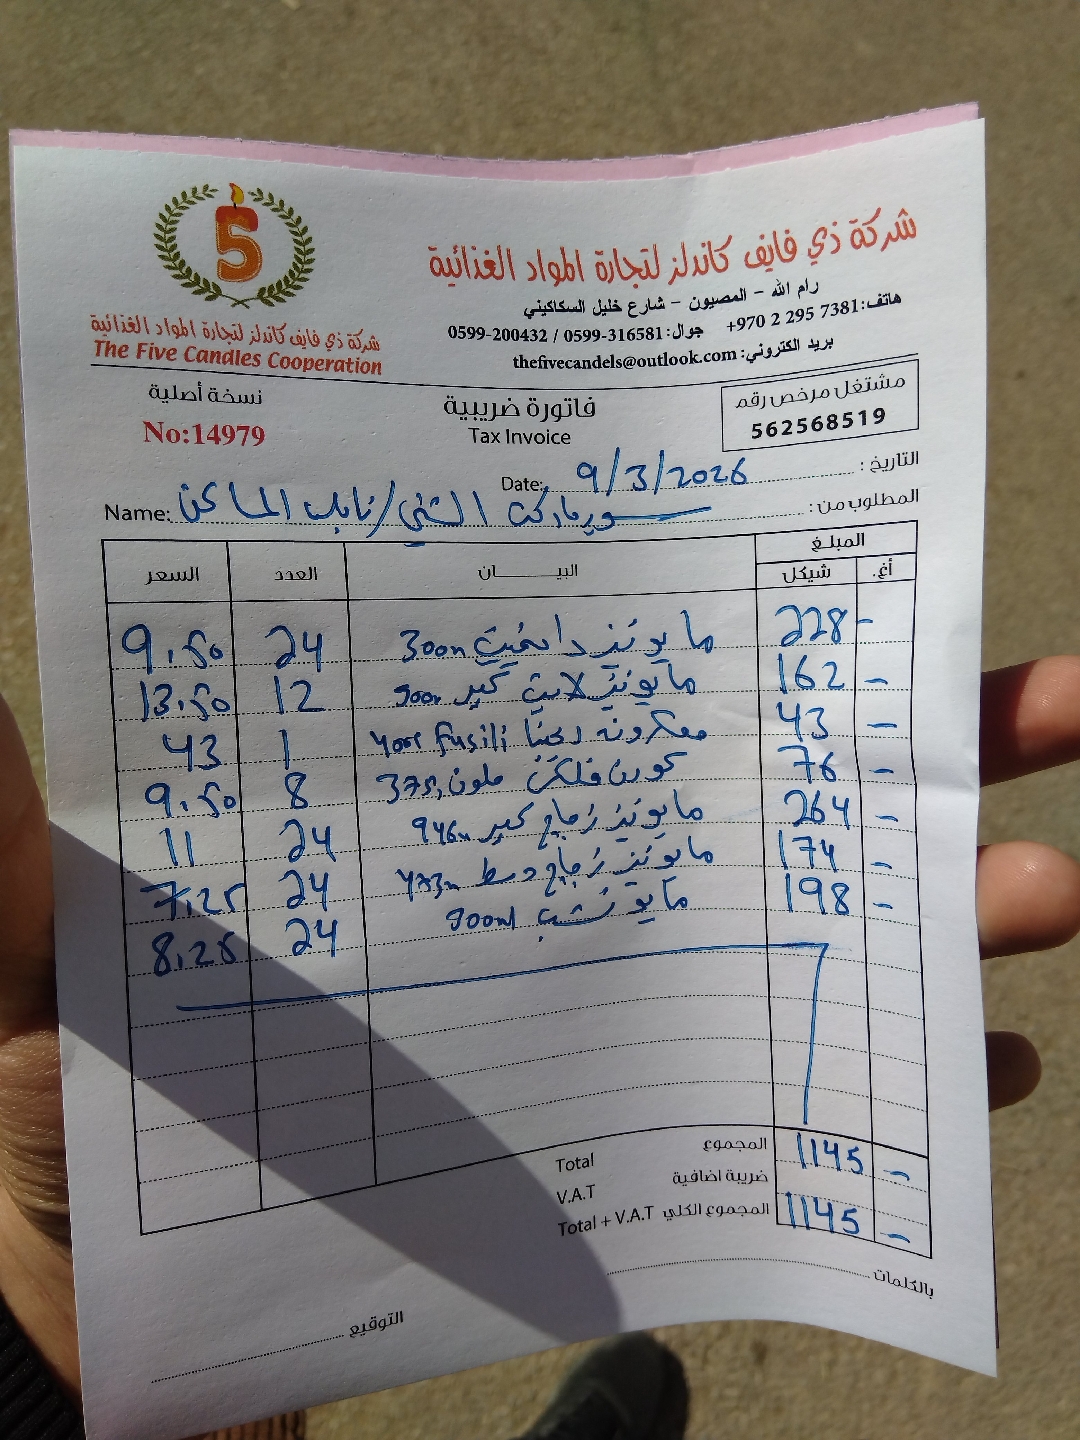 5
شركة ذي فايف كاندلز لتجارة المواد الغذائية
رام الله - المصيون - شارع خليل السكاكيني
هاتف: +970 2 295 7381 جوال: 0599-316581 / 0599-200432
بريد الكتروني: thefivecandels@outlook.com
شركة ذي فايف كاندلز لتجارة المواد الغذائية
The Five Candles Cooperation
نسخة أصلية
No:14979
فاتورة ضريبية
Tax Invoice
مشتغل مرخص رقم
562568519
التاريخ : Date: 9/3/2026
المطلوب من : Name: سوبرماركت /
المبلغ
أغ. شيكل البيـــــان العدد السعر
- 228 مايونيز دايت 300m 24 9.50
- 162 مايونيز لايت كبير 900m 12 13.50
- 43 معكرونه fusili 400g 1 43
- 76 كورن فلكس ملون 375g 8 9.50
- 264 مايونيز زجاج كبير 946m 24 11
- 174 مايونيز زجاج وسط 473m 24 7.25
- 198 مايونيز 900ml 24 8.25
المجموع Total 1145 -
ضريبة اضافية V.A.T
المجموع الكلي Total + V.A.T 1145 -
بالكلمات
التوقيع